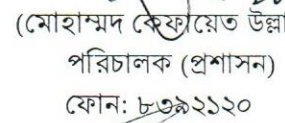 (মোহাম্মদ কেফায়েত উল্লা
পরিচালক (প্রশাসন)
ফোন: ৮৩৯২১২০